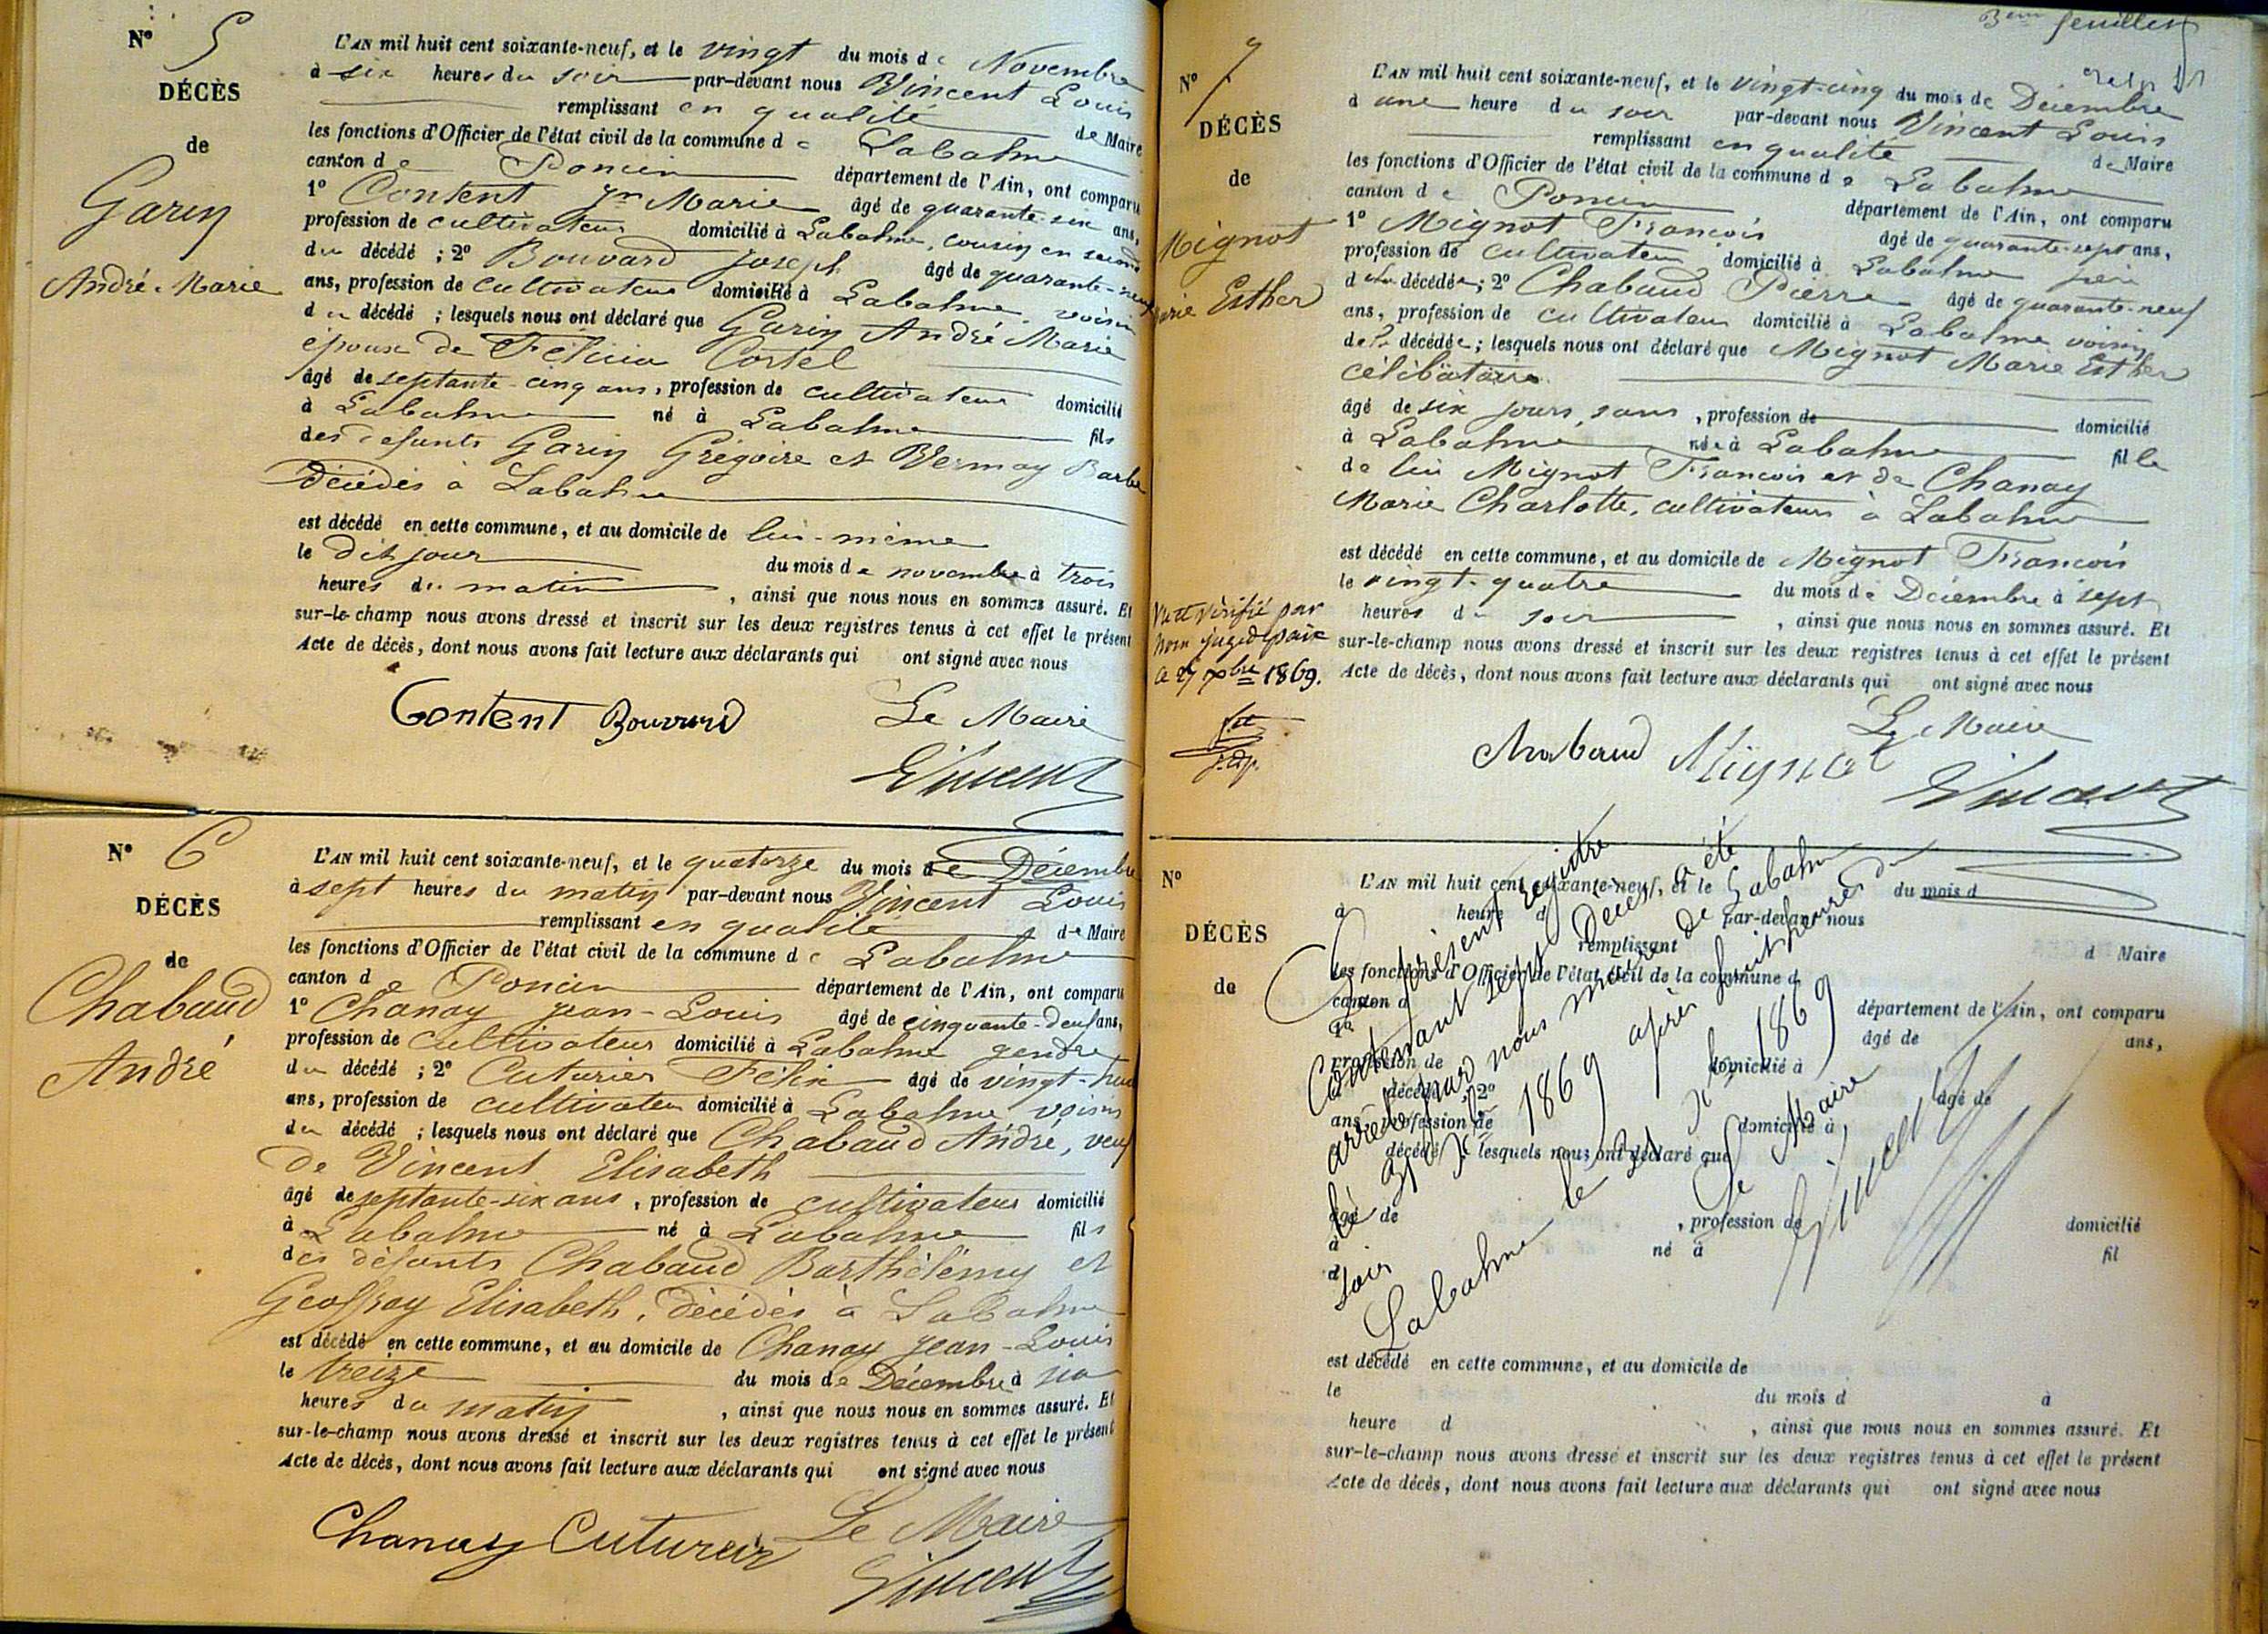 N° 5
DÉCÈS
de
Garin
André-Marie
L'AN mil huit cent soixante-neuf, et le vingt du mois de Novembre
à six heures du soir par-devant nous Vincent Louis
remplissant en qualité de Maire
les fonctions d'Officier de l'état civil de la commune de Labalme
canton de Poncin département de l'Ain, ont comparu
1° Content Jn Marie âgé de quarante-six ans,
profession de cultivateur domicilié à Labalme, cousin en second
du décédé ; 2° Bouvard Joseph âgé de quarante-neuf
ans, profession de cultivateur domicilié à Labalme, voisin
du décédé ; lesquels nous ont déclaré que Garin André Marie
époux de Félicie Cortel
âgé de septante-cinq ans, profession de cultivateur domicilié
à Labalme né à Labalme fils
des défunts Garin Grégoire et Vermay Barbe
décédés à Labalme
est décédé en cette commune, et au domicile de lui-même
le dit jour du mois de novembre à trois
heures du matin, ainsi que nous nous en sommes assuré. Et
sur-le-champ nous avons dressé et inscrit sur les deux registres tenus à cet effet le présent
Acte de décès, dont nous avons fait lecture aux déclarants qui ont signé avec nous
Content Bouvard Le Maire
Vincent
N° 6
DÉCÈS
de
Chabaud
André
L'AN mil huit cent soixante-neuf, et le quatorze du mois de Décembre
à sept heures du matin par-devant nous Vincent Louis
remplissant en qualité de Maire
les fonctions d'Officier de l'état civil de la commune de Labalme
canton de Poncin département de l'Ain, ont comparu
1° Chanay Jean-Louis âgé de cinquante-deux ans,
profession de cultivateur domicilié à Labalme gendre
du décédé ; 2° Cuturier Félix âgé de vingt-huit
ans, profession de cultivateur domicilié à Labalme voisin
du décédé ; lesquels nous ont déclaré que Chabaud André, veuf
de Vincent Elisabeth
âgé de septante-six ans, profession de cultivateur domicilié
à Labalme né à Labalme fils
des défunts Chabaud Barthélémy et
Geoffray Elisabeth, décédés à Labalme
est décédé en cette commune, et au domicile de Chanay Jean-Louis
le treize du mois de Décembre à six
heures du matin, ainsi que nous nous en sommes assuré. Et
sur-le-champ nous avons dressé et inscrit sur les deux registres tenus à cet effet le présent
Acte de décès, dont nous avons fait lecture aux déclarants qui ont signé avec nous
Chanay Cutureir Le Maire
Vincent
3ème feuillet
N° 7
DÉCÈS
de
Mignot
Marie Esther
L'AN mil huit cent soixante-neuf, et le vingt-cinq du mois de Décembre
à une heure du soir par-devant nous Vincent Louis
remplissant en qualité de Maire
les fonctions d'Officier de l'état civil de la commune de Labalme
canton de Poncin département de l'Ain, ont comparu
1° Mignot François âgé de quarante-sept ans,
profession de cultivateur domicilié à Labalme père
de la décédée ; 2° Chabaud Pierre âgé de quarante-neuf
ans, profession de cultivateur domicilié à Labalme voisin
de la décédée ; lesquels nous ont déclaré que Mignot Marie Esther
célibataire
âgé de six jours, sans, profession de domicilié
à Labalme née à Labalme fille
de lui Mignot François et de Chanay
Marie Charlotte, cultivateurs à Labalme
est décédé en cette commune, et au domicile de Mignot François
le vingt-quatre du mois de Décembre à sept
heures du soir, ainsi que nous nous en sommes assuré. Et
sur-le-champ nous avons dressé et inscrit sur les deux registres tenus à cet effet le présent
Acte de décès, dont nous avons fait lecture aux déclarants qui ont signé avec nous
Vu et vérifié par
nous juge de paix
ce 27 Xbre 1869.
Chabaud Mignot Le Maire
Vincent
N°
DÉCÈS
de
L'AN mil huit cent soixante-neuf, et le du mois d
à heure d par-devant nous
remplissant d Maire
les fonctions d'Officier de l'état civil de la commune d
canton d département de l'Ain, ont comparu
1° âgé de ans,
profession de domicilié à
d décédé ; 2° âgé de
ans, profession de domicilié à
d décédé ; lesquels nous ont déclaré que
âgé de , profession de domicilié
à né à fil
d
Le présent registre
Contenant sept Décès, a été
arrêté par nous maire de Labalme
le 31 Xbre 1869 après huit heures du
soir
Labalme le 31 Xbre 1869
Le Maire
Vincent
est décédé en cette commune, et au domicile de
le du mois d à
heure d , ainsi que nous nous en sommes assuré. Et
sur-le-champ nous avons dressé et inscrit sur les deux registres tenus à cet effet le présent
Acte de décès, dont nous avons fait lecture aux déclarants qui ont signé avec nous